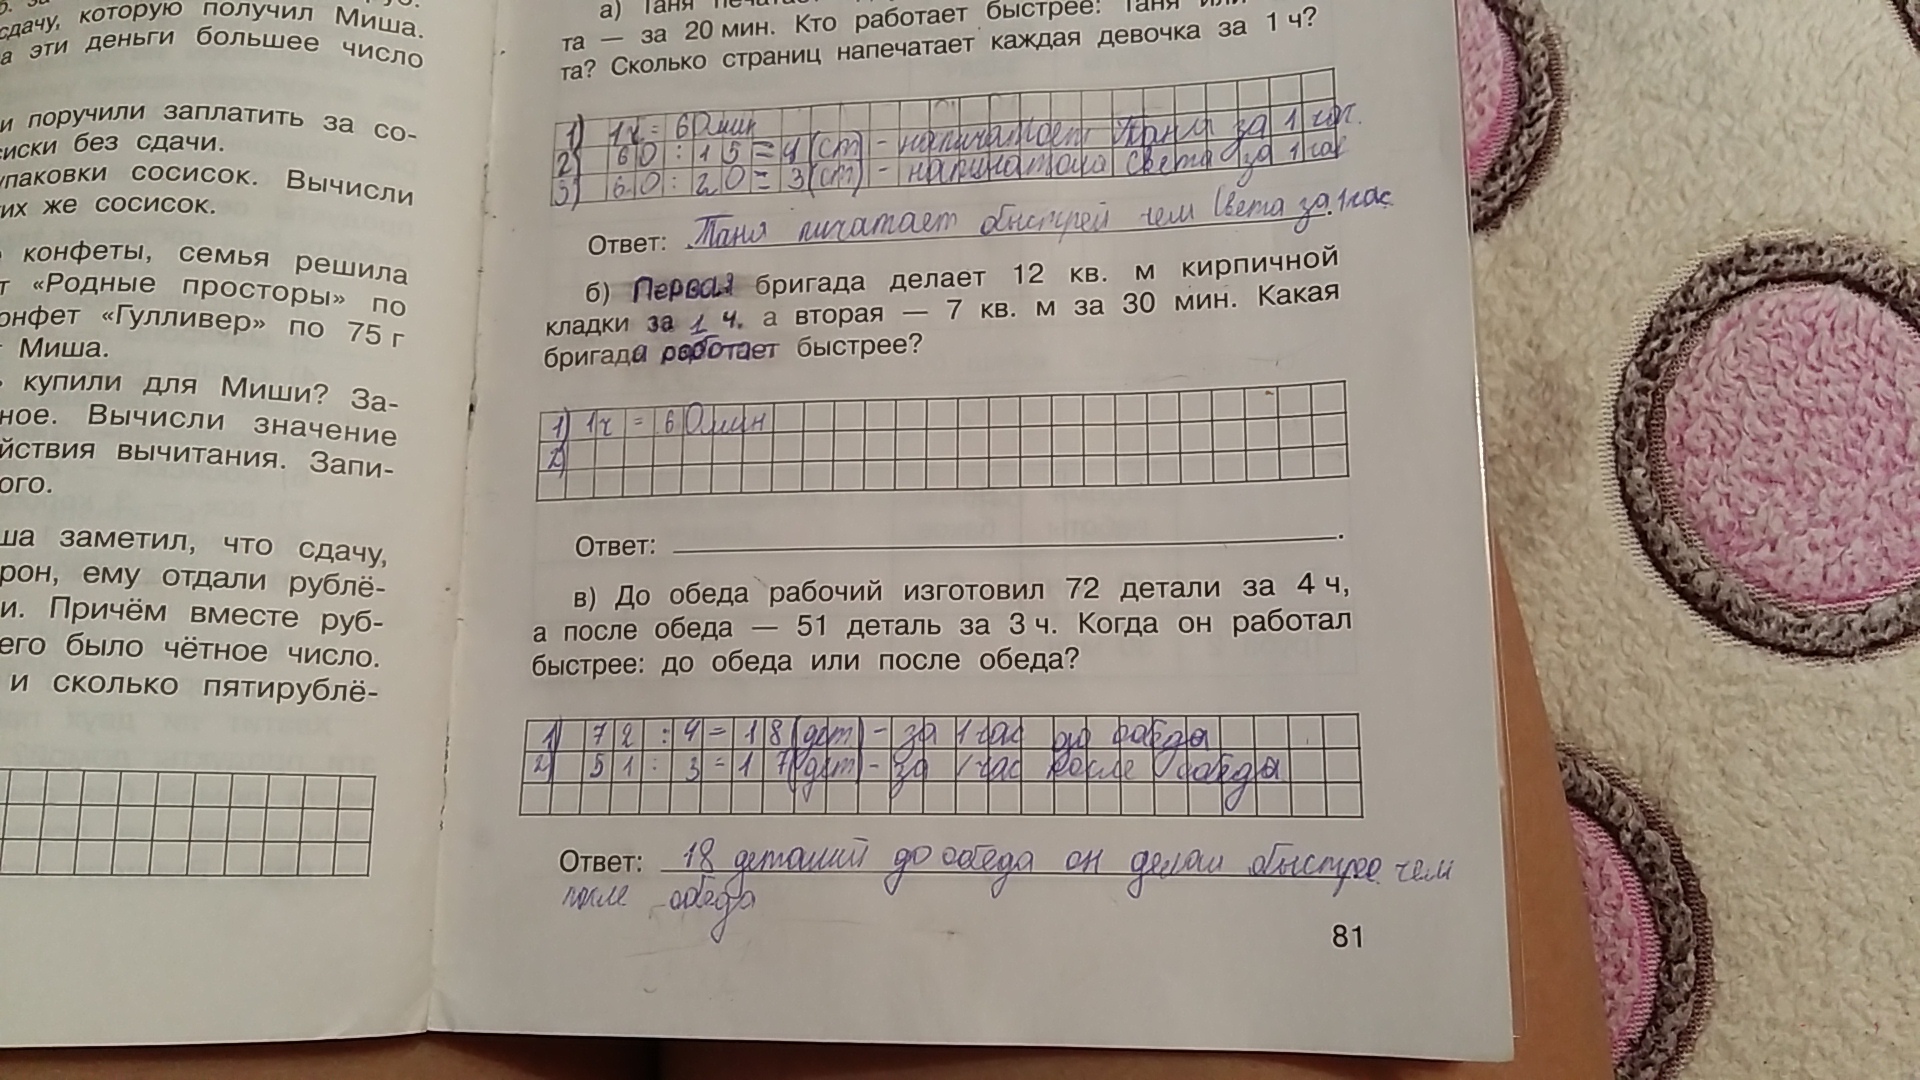 сдачу, которую получил Миша.
а эти деньги большее число
и поручили заплатить за со-
сиски без сдачи.
упаковки сосисок. Вычисли
их же сосисок.
конфеты, семья решила
т «Родные просторы» по
онфет «Гулливер» по 75 г
Миша.
купили для Миши? За-
ное. Вычисли значение
йствия вычитания. Запи-
ого.
ша заметил, что сдачу,
рон, ему отдали рублё-
и. Причём вместе руб-
его было чётное число.
и сколько пятирублё-
а) Таня
та — за 20 мин. Кто работает быстрее: Таня или
та? Сколько страниц напечатает каждая девочка за 1 ч?
1) 1ч = 60мин
2) 60 : 15 = 4 (ст) - Таня за 1 час.
3) 60 : 20 = 3 (ст) - Света за 1 час
Ответ: Таня пичатает быстрей чем Света за 1 час.
б) Первая бригада делает 12 кв. м кирпичной
кладки за 1 ч. а вторая — 7 кв. м за 30 мин. Какая
бригада работает быстрее?
1) 1ч = 60мин
2)
Ответ: .
в) До обеда рабочий изготовил 72 детали за 4 ч,
а после обеда — 51 деталь за 3 ч. Когда он работал
быстрее: до обеда или после обеда?
1) 72 : 4 = 18 (дет) - за 1 час до обеда
2) 51 : 3 = 17 (дет) - за 1 час после обеда
Ответ: 18 деталий до обеда он делал быстрее чем
после обеда
81